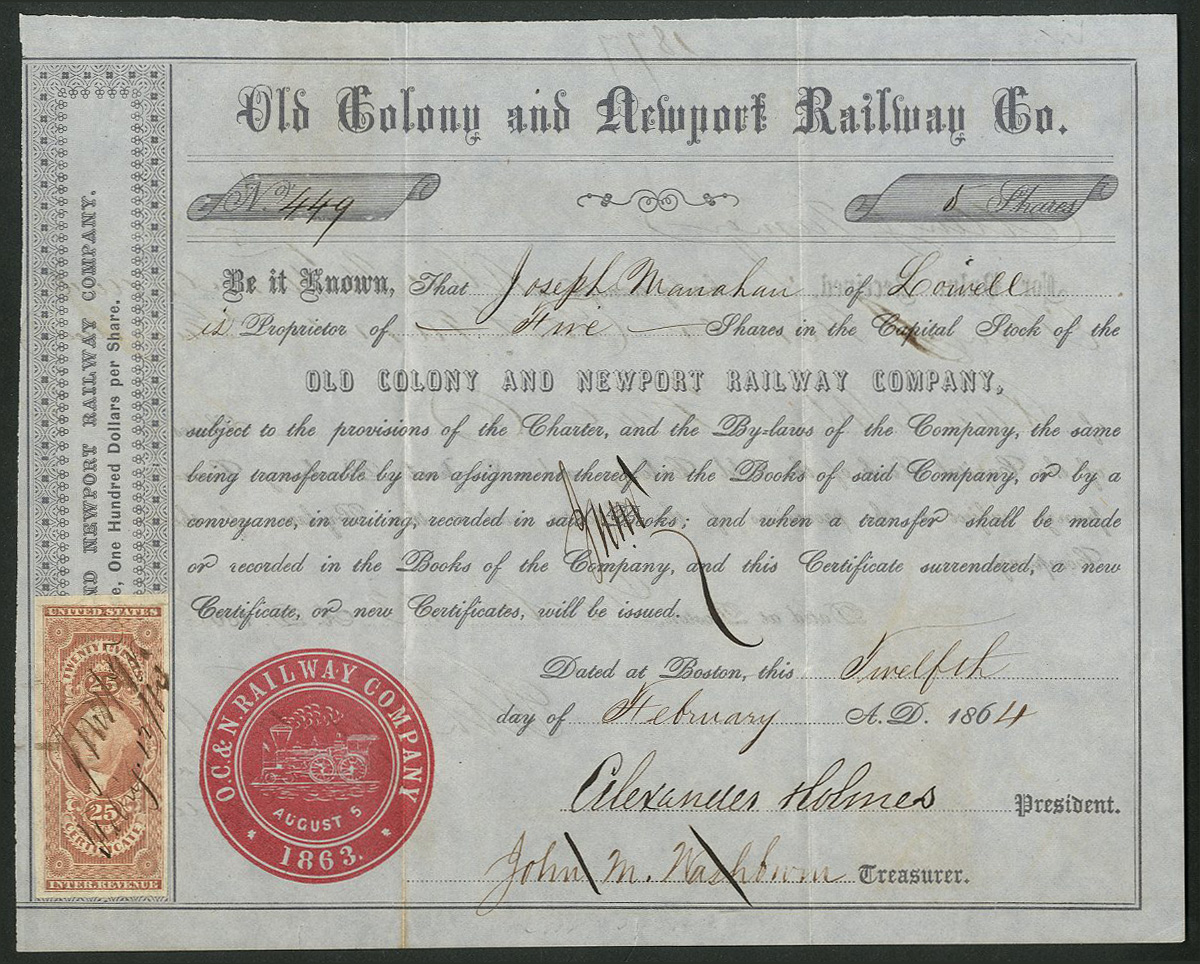 1877
Old Colony and Newport Railway Co.
No. 449
5 Shares
Be it Known, That Joseph Manahan of Lowell
is Proprietor of Five Shares in the Capital Stock of the
OLD COLONY AND NEWPORT RAILWAY COMPANY,
subject to the provisions of the Charter, and the By-laws of the Company, the same
being transferable by an assignment thereof in the Books of said Company, or by a
conveyance, in writing, recorded in said Books; and when a transfer shall be made
or recorded in the Books of the Company, and this Certificate surrendered, a new
Certificate, or new Certificates, will be issued.
Dated at Boston, this Twelfth
day of February A.D. 1864
Alexander Holmes President.
John M. Washburn Treasurer.
O.C. & N. RAILWAY COMPANY
AUGUST 5
1863.
ND NEWPORT RAILWAY COMPANY.
e, One Hundred Dollars per Share.
UNITED STATES
TWENTY FIVE
25
CERTIFICATE
INTER. REVENUE